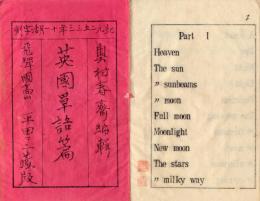 紀元二千五百三十一年十一月新刊
奥村春斎編輯
英國單語篇
飛彈國高山 平田
2
Part I
Heaven
The sun
" sunbeams
" moon
Full moon
Moonlight
New moon
The stars
" milky way